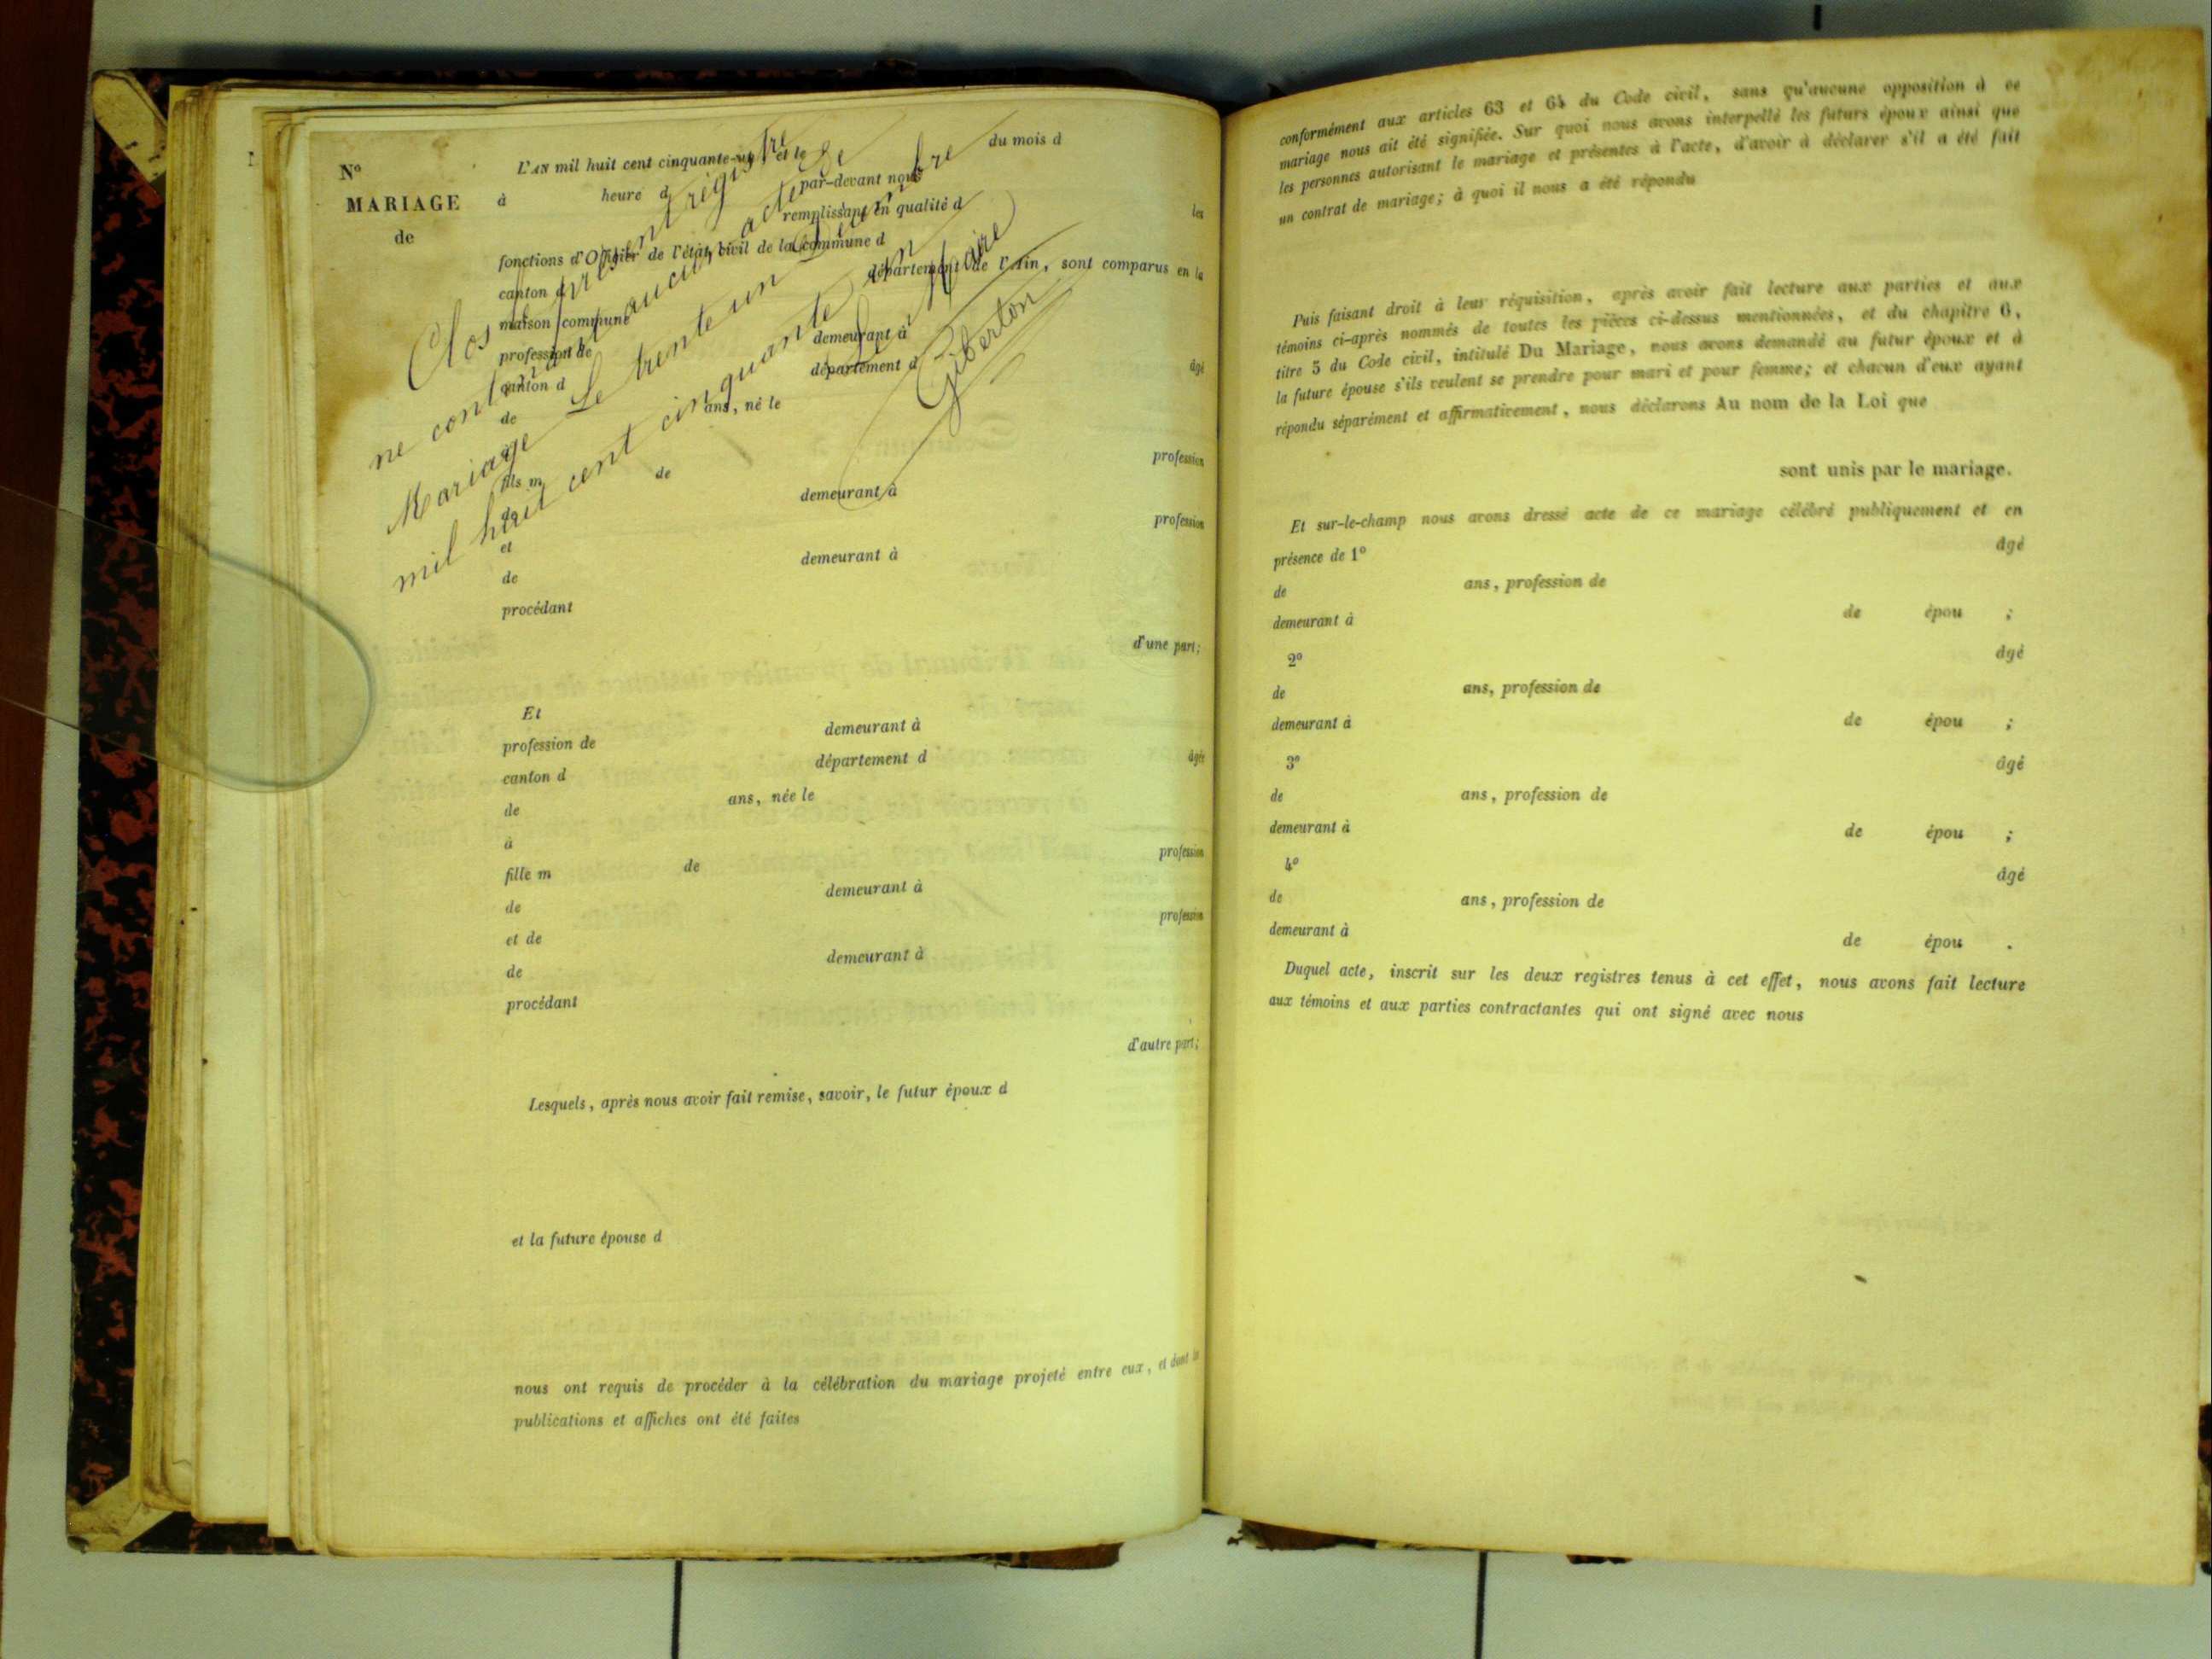 Nº
MARIAGE
de
L'AN mil huit cent cinquante-un et le du mois d
à heure d par-devant nous
remplissant en qualité d les
fonctions d'Officier de l'état civil de la commune d
canton d département de l'Ain, sont comparus en la
maison commune
profession de demeurant à
canton d département d âgé
de ans, né le
à
fils m de profession
de demeurant à
et profession
de demeurant à
procédant
d'une part;
Et
profession de demeurant à
canton d département d âgée
de ans, née le
à
fille m de profession
de demeurant à
et de profession
de demeurant à
procédant
d'autre part;
Lesquels, après nous avoir fait remise, savoir, le futur époux d
et la future épouse d
nous ont requis de procéder à la célébration du mariage projeté entre eux, et dont les
publications et affiches ont été faites
Clos présent régistre
ne contenant aucun acte de
Mariage Le trente un Décembre
mil huit cent cinquante un
Le Maire
Giberton
conformément aux articles 63 et 64 du Code civil, sans qu'aucune opposition à ce
mariage nous ait été signifiée. Sur quoi nous avons interpellé les futurs époux ainsi que
les personnes autorisant le mariage et présentes à l'acte, d'avoir à déclarer s'il a été fait
un contrat de mariage; à quoi il nous a été répondu
Puis faisant droit à leur réquisition, après avoir fait lecture aux parties et aux
témoins ci-après nommés de toutes les pièces ci-dessus mentionnées, et du chapitre 6,
titre 5 du Code civil, intitulé Du Mariage, nous avons demandé au futur époux et à
la future épouse s'ils veulent se prendre pour mari et pour femme; et chacun d'eux ayant
répondu séparément et affirmativement, nous déclarons Au nom de la Loi que
sont unis par le mariage.
Et sur-le-champ nous avons dressé acte de ce mariage célébré publiquement et en
présence de 1º âgé
de ans, profession de
demeurant à de épou ;
2º âgé
de ans, profession de
demeurant à de épou ;
3º âgé
de ans, profession de
demeurant à de épou ;
4º âgé
de ans, profession de
demeurant à de épou .
Duquel acte, inscrit sur les deux registres tenus à cet effet, nous avons fait lecture
aux témoins et aux parties contractantes qui ont signé avec nous